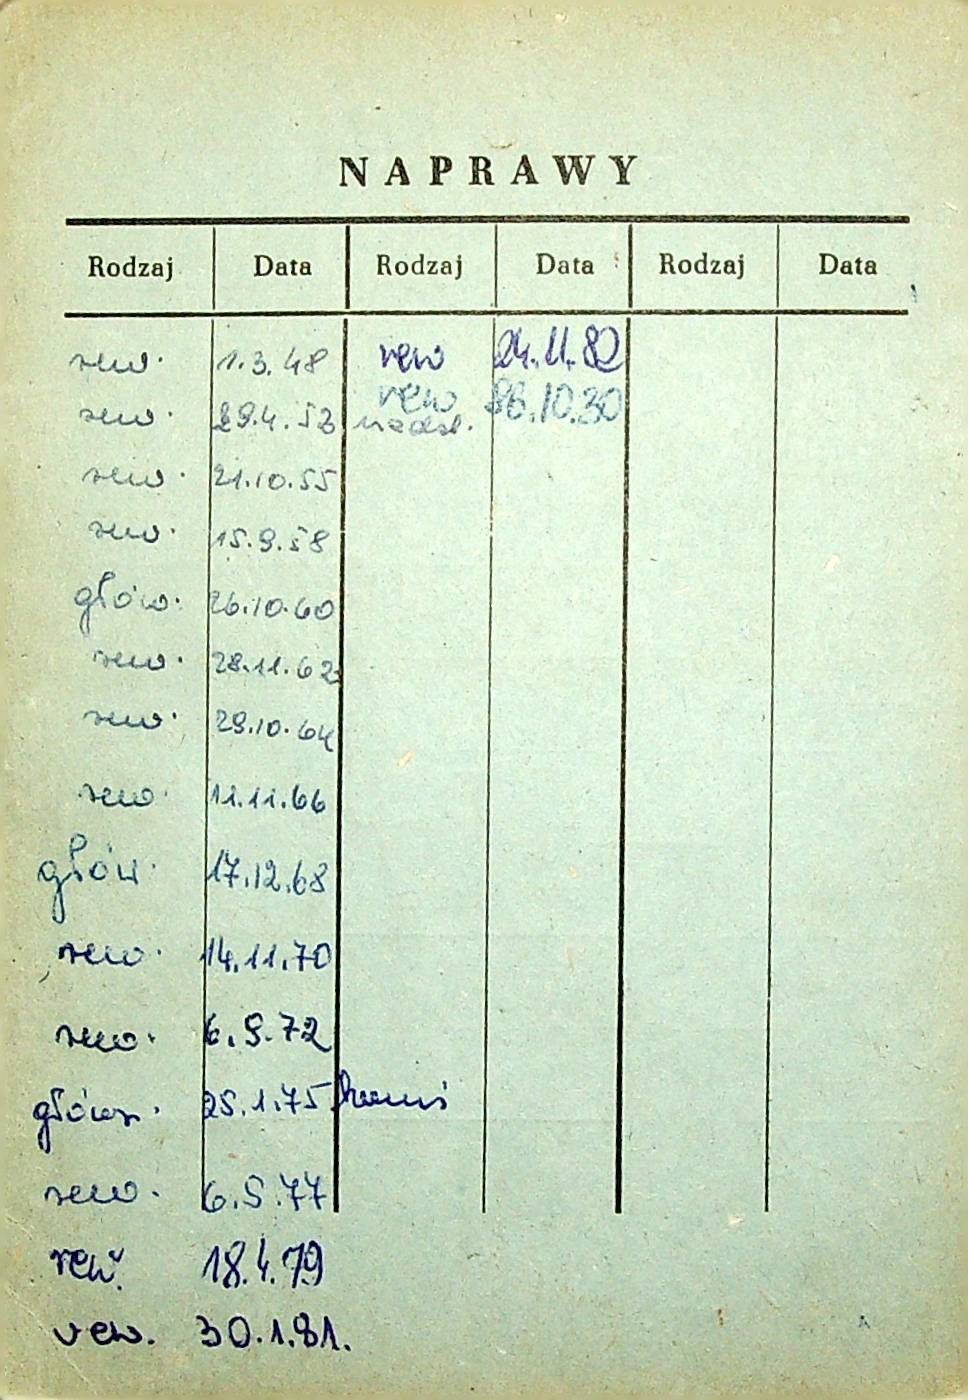 NAPRAWY
Rodzaj Data Rodzaj Data Rodzaj Data
rew. 1.3.48 rew 24.11.82
rew. 29.4.53 rew 86.10.30
nadzl.
rew. 21.10.55
rew. 15.9.58
głów. 26.10.60
rew. 28.11.62
rew. 29.10.64
rew. 11.11.66
głów. 17.12.68
rew. 14.11.70
rew. 6.9.72
główn. 25.1.75
rew. 6.5.77
rew. 18.4.79
rew. 30.1.81.